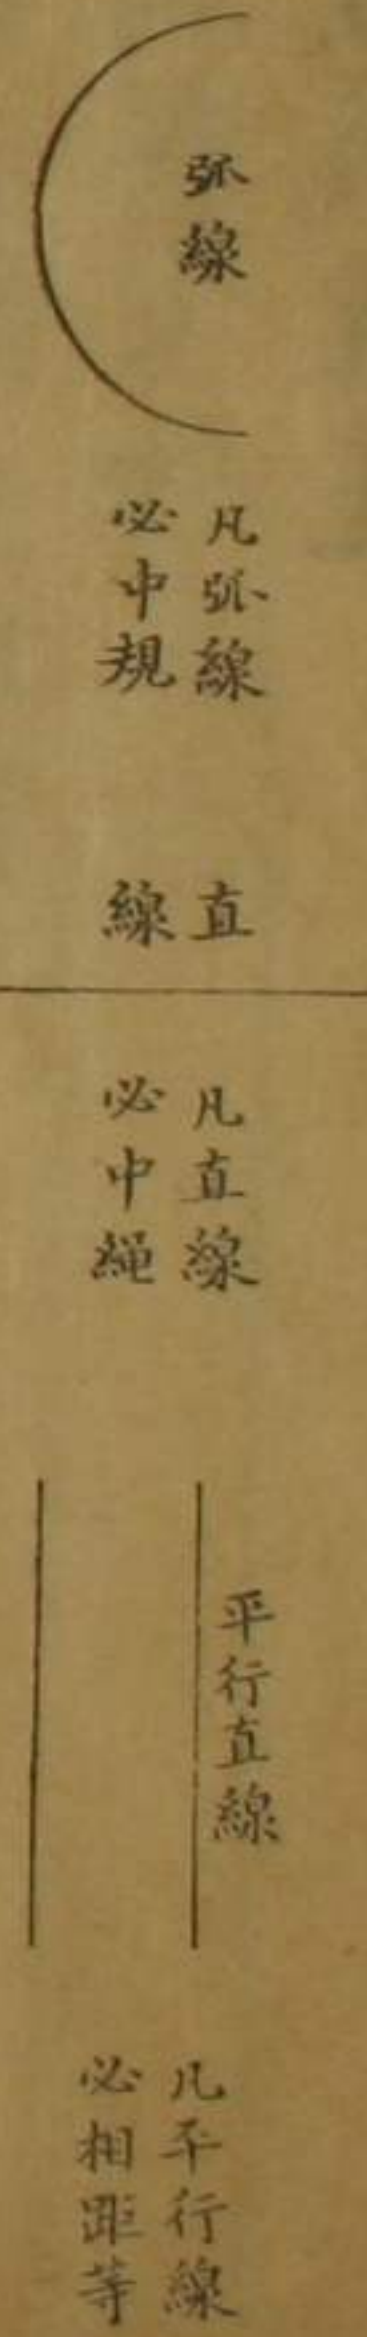 弧線
凡弧線
必中規
直
線
凡直線
必中繩
平行直線
凡平行線
必相距等